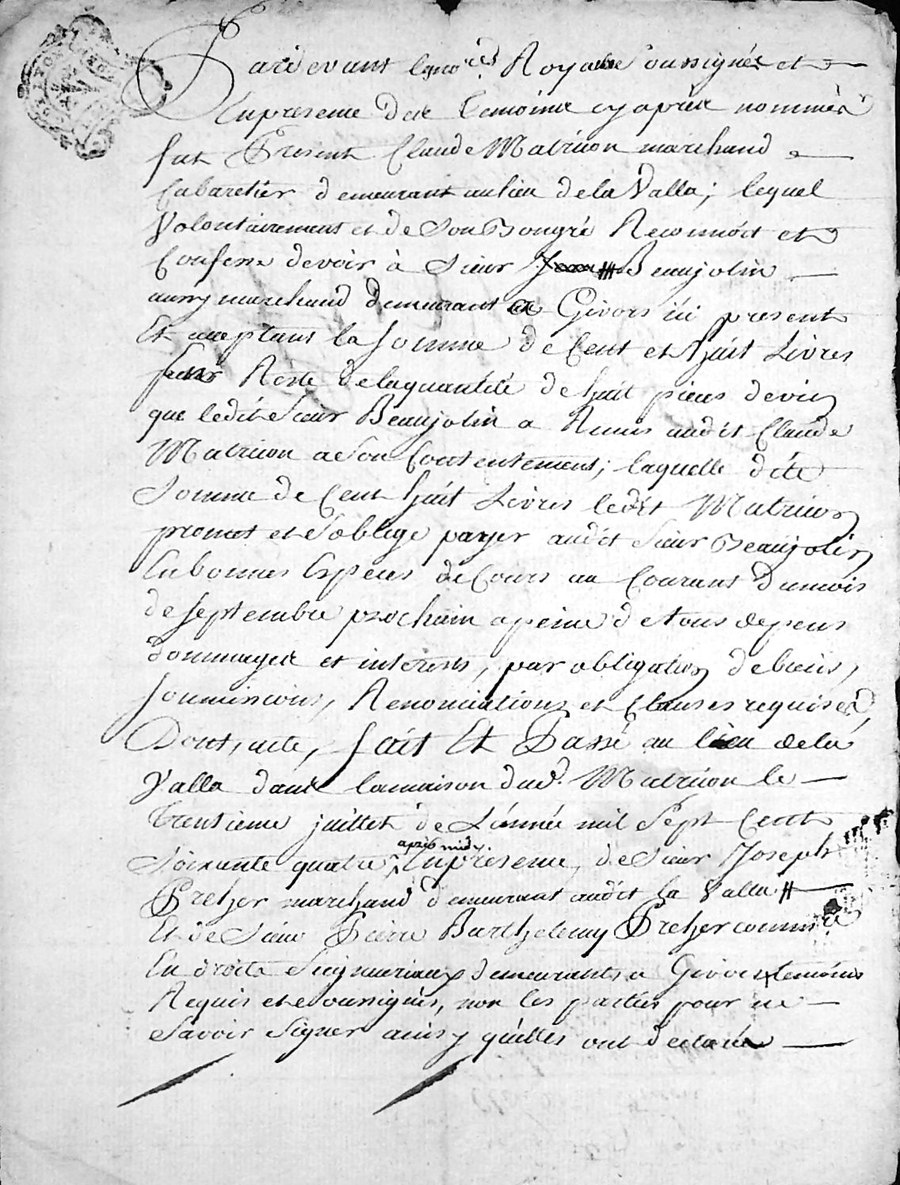 Pardevant le no.re Royal soussigné et
En presence des temoins cy après nommés
fut Present Claude Matricon marchand
Cabaretier demeurant au lieu de la Valla; lequel
Volontairement et de Son Bongré Reconnoit et
Confesse devoir à Sieur Beaujolin
aussy marchand demeurant a Givors ici present
Et acceptant la Somme de Cent et huit Livres
Reste de la quantité de huit pieces de vin
que ledit Sieur Beaujolin a Remis audit Claude
Matricon a Son Contentement; laquelle dite
Somme de Cent huit Livres ledit Matricon
promet et S'oblige payer audit Sieur Beaujolin
En bonnes Especes de Cours au Courant du mois
de Septembre prochain a peine de tous depens
dommages et interests, par obligation de biens,
Soumissions, Renonciations et Clauses requises
Dont acte, fait Et Passé au lieu de la
Valla dans la maison dud. Matricon le
Trensieme juillet de L'année mil Sept Cent
Soixante quatre apres midy En presence de Sieur Joseph
Preher marchand demeurant audit la Valla
Et de Sieur Pierre Barthelemy Preher commis
En droits Seigneuriaux demeurants a Givors temoins
Requis et Soussignés, non les parties pour ne
Savoir Signer ainsy qu'elles ont declaré